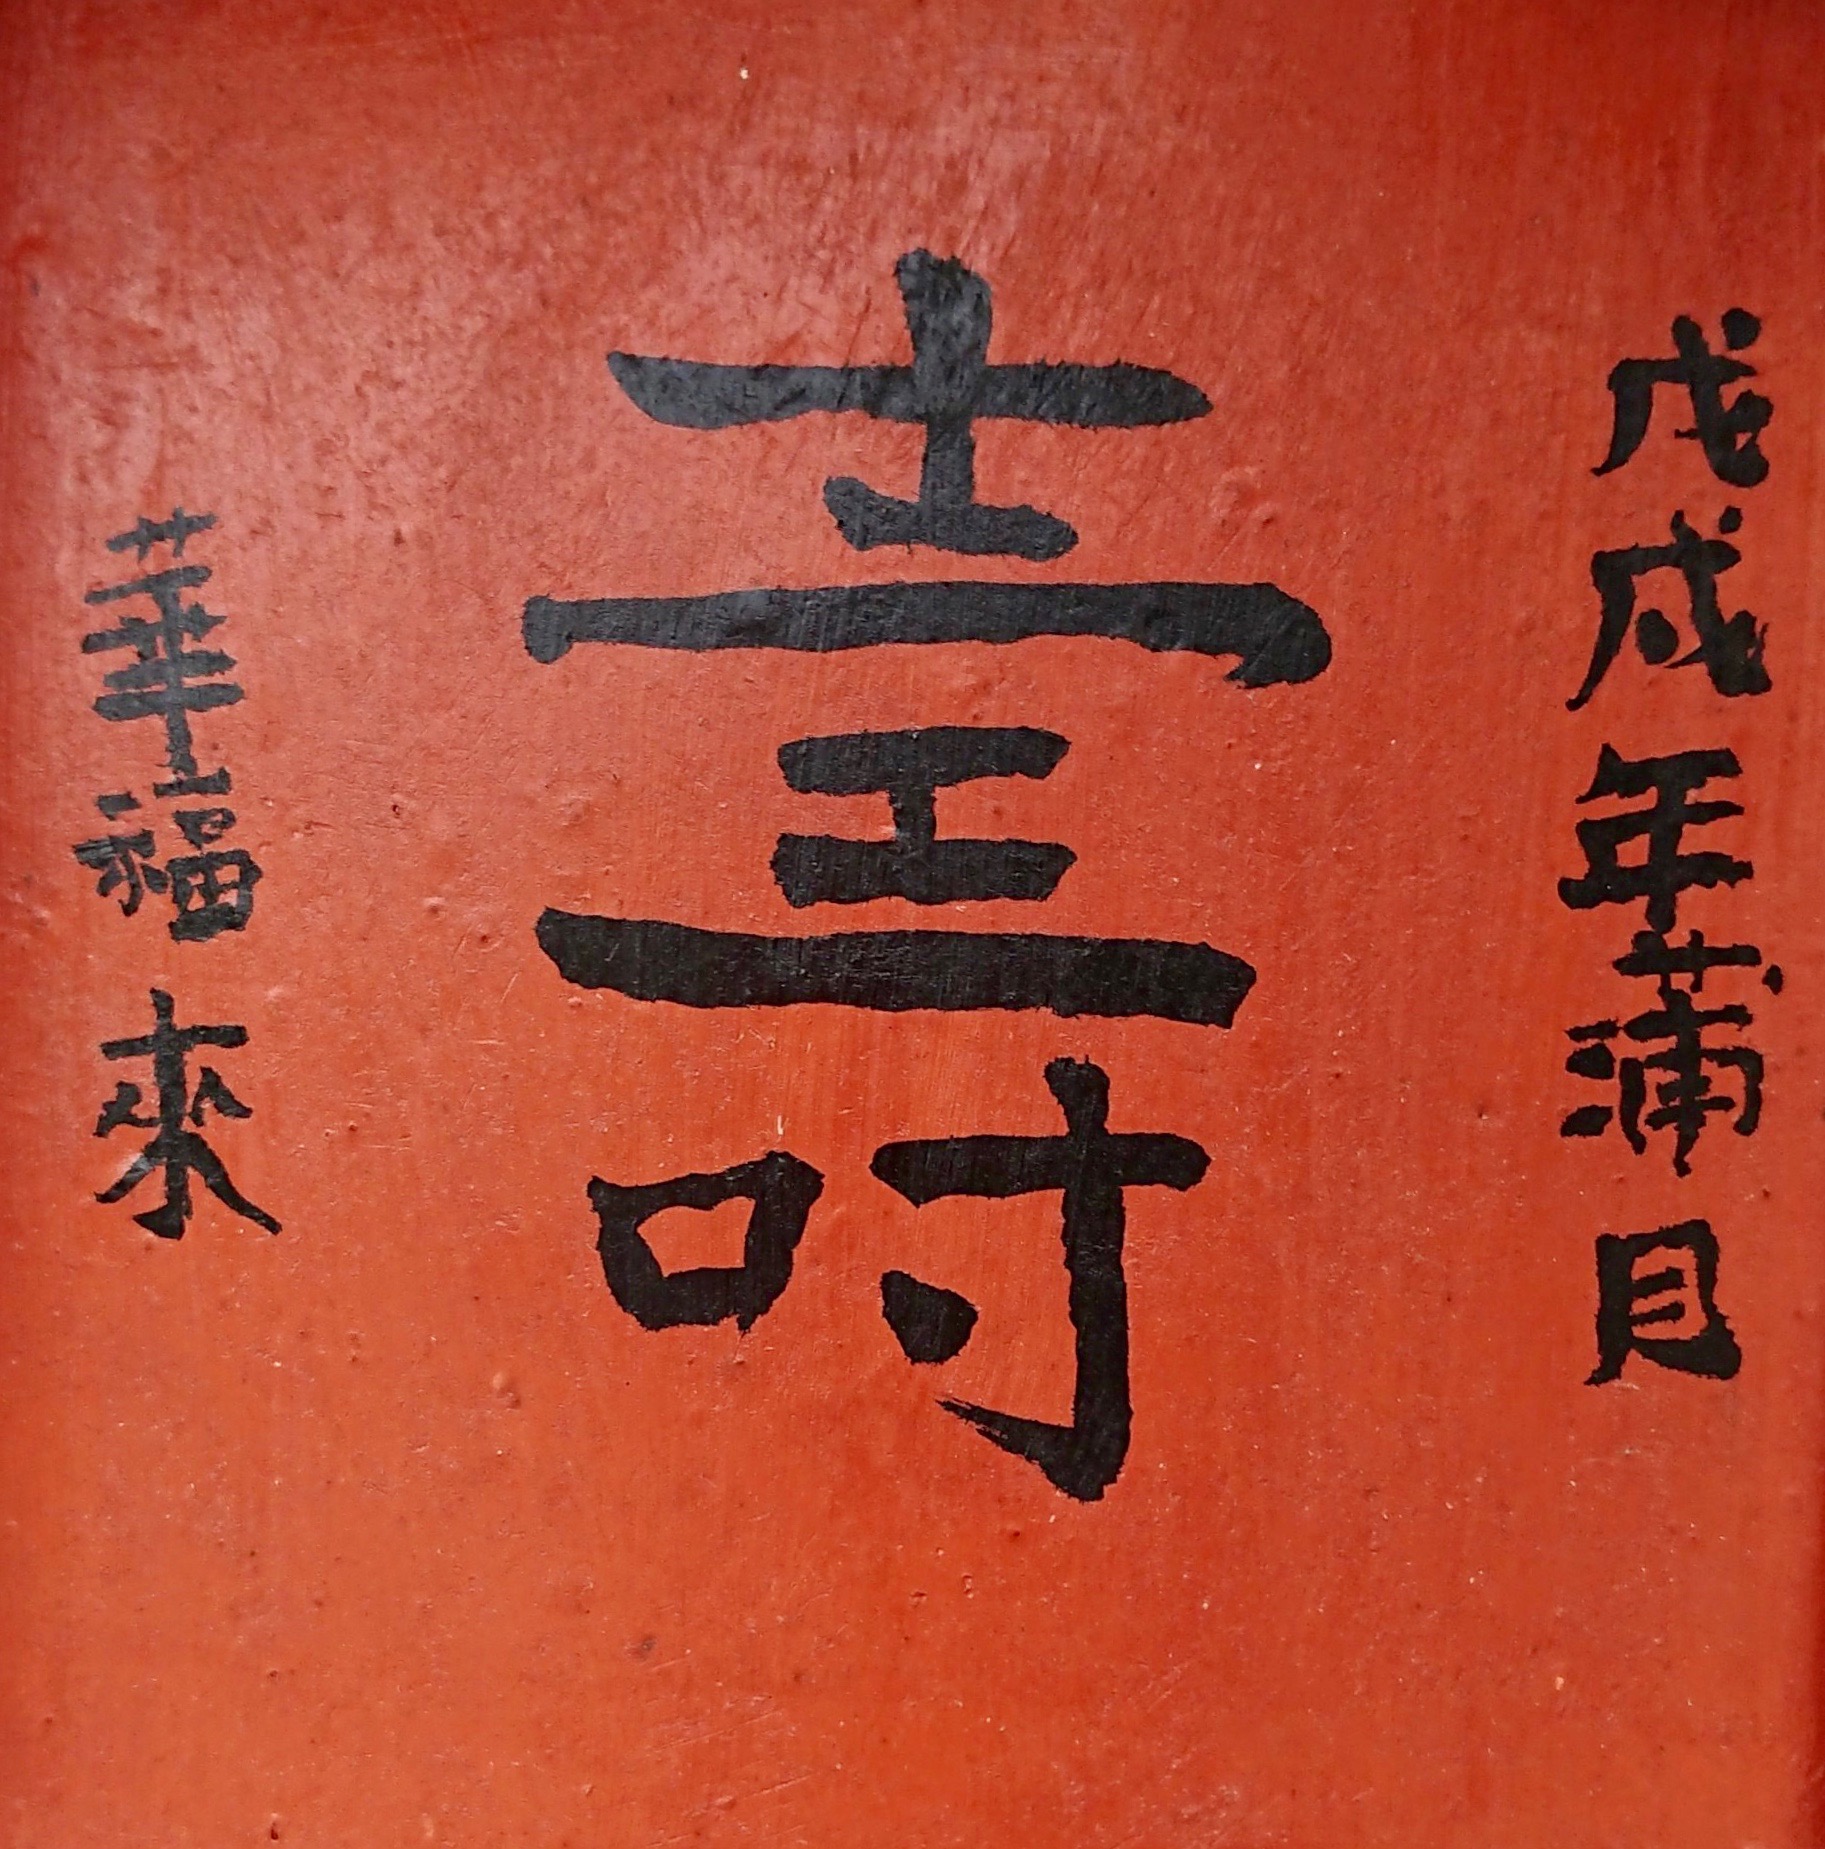 戊戌年蒲月
壽
華福來